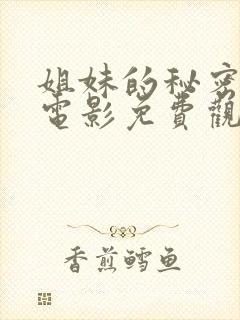 姐妹的秘密
電影免費觀
香煎鳕鱼